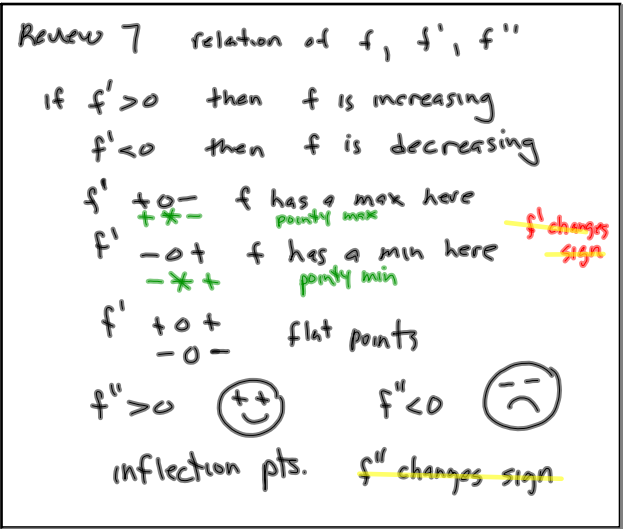 Review 7 relation of f, f', f''
If f'>0 then f is increasing
f'<0 then f is decreasing
f' +0- f has a max here
+*- pointy max
f' changes
sign
f' -0+ f has a min here
-*+ pointy min
f' +0+ flat points
-0-
f''>0 ++ f''<0 --
inflection pts. f'' changes sign